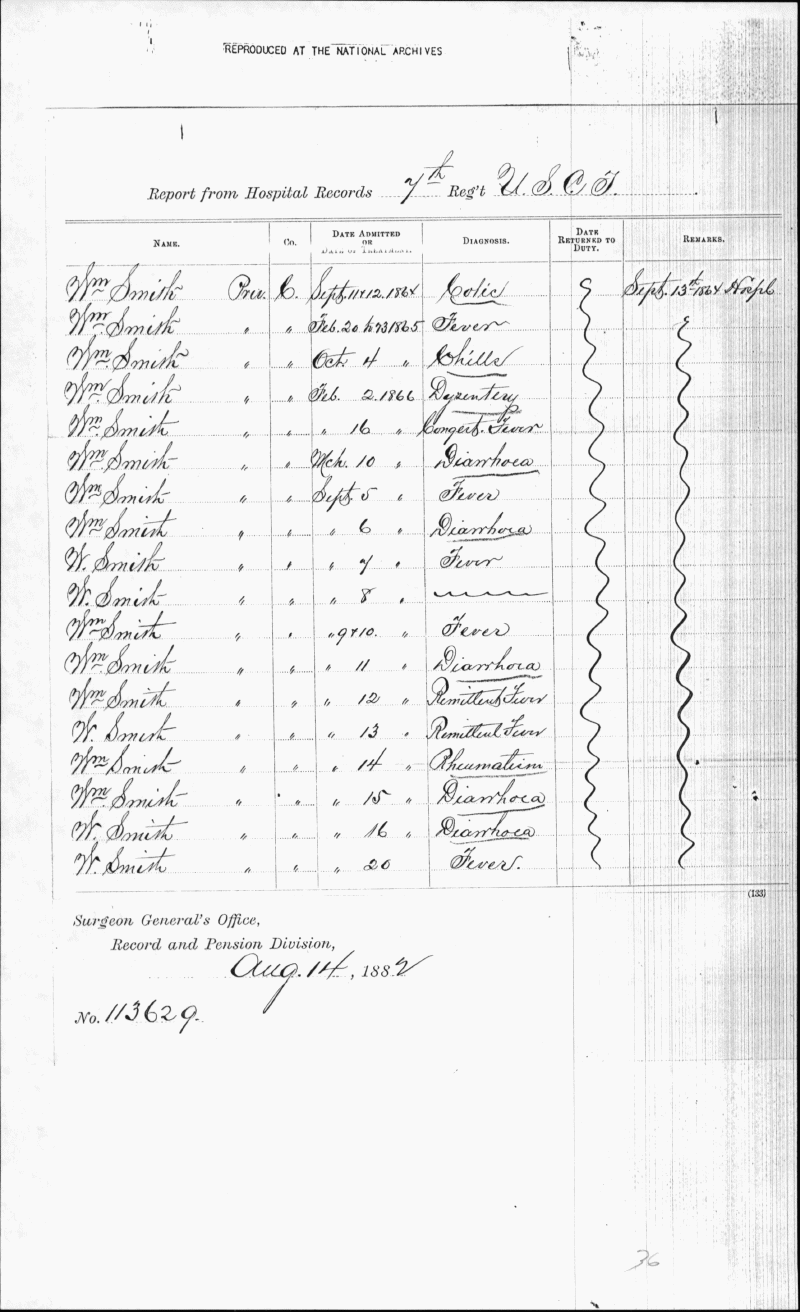 REPRODUCED AT THE NATIONAL ARCHIVES
Report from Hospital Records 7th Reg't U.S.C.T.
NAME. Co. DATE ADMITTED OR DATE OF TREATMENT. DIAGNOSIS. DATE RETURNED TO DUTY. REMARKS.
Wm Smith Priv. C. Sept. 11 & 12. 1864 Colic Sept. 13th 1864 Hospl
Wm Smith " " Feb. 20 1865 Fever
Wm. Smith " " Oct. 4 " Chills
Wm Smith " " Feb. 2. 1866 Dysentery
Wm. Smith " " " 16 " Congest. Fever
Wm Smith " " Mch. 10 " Diarrhoea
Wm Smith " " Sept. 5 " Fever
Wm Smith " " " 6 " Diarrhoea
W. Smith " " " 7 " Fever
W. Smith " " " 8 "
Wm Smith " " " 9 & 10. " Fever
Wm Smith " " " 11 " Diarrhoea
Wm Smith " " " 12 " Remittent Fever
W. Smith " " " 13 " Remittent Fever
Wm Smith " " " 14 " Rheumatism
Wm. Smith " " " 15 " Diarrhoea
W. Smith " " " 16 " Diarrhoea
W. Smith " " " 20 Fever.
(133)
Surgeon General's Office,
Record and Pension Division,
Aug. 14, 1882
No. 113629.
36